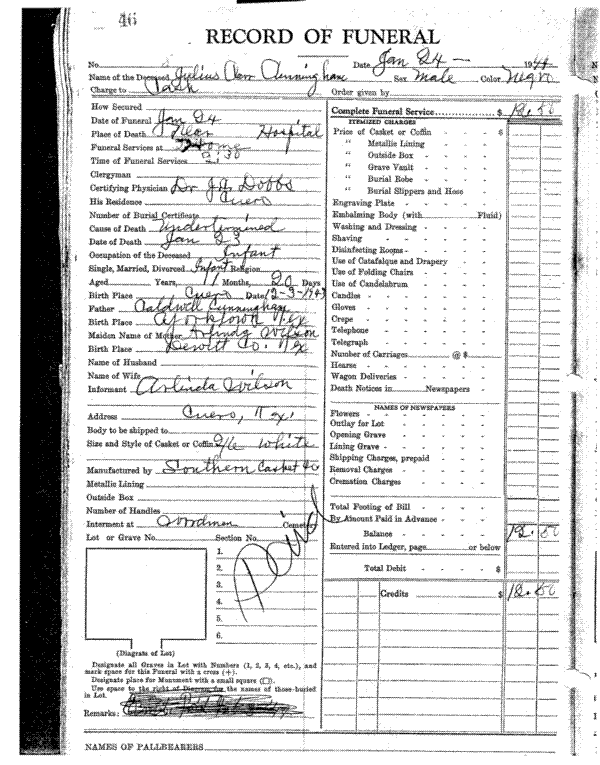 46
RECORD OF FUNERAL
No. Date Jan 24 - 1944
Name of the Deceased Julius Cunningham Sex Male Color Negro
Charge to Cash Order given by
How Secured
Date of Funeral Jan 24
Place of Death Near Hospital
Funeral Services at Home
Time of Funeral Services 2:30
Clergyman
Certifying Physician Dr. J.A. Dobbs
His Residence Cuero
Number of Burial Certificate
Cause of Death Undetermined
Date of Death Jan 23
Occupation of the Deceased Infant
Single, Married, Divorced Infant Religion
Aged Years, Months, 20 Days
Birth Place Cuero Date 12-3-1943
Father Caldwell Cunningham
Birth Place Yorktown Tex
Maiden Name of Mother Arlinda Wilson
Birth Place Dewitt Co. Tex
Name of Husband
Name of Wife
Informant Arlinda Wilson
Address Cuero, Tex.
Body to be shipped to
Size and Style of Casket or Coffin 2/6 White
Manufactured by Southern Casket Co
Metallic Lining
Outside Box
Number of Handles
Interment at Woodmen Cemetery
Lot or Grave No. Section No.
1.
2.
3.
4.
5.
6.
Paid
(Diagram of Lot)
Designate all Graves in Lot with Numbers (1, 2, 3, 4, etc.), and
mark space for this Funeral with a cross (+).
Designate place for Monument with a small square (□).
Use space to the right of Diagram for the names of those buried
in Lot.
Remarks:
NAMES OF PALLBEARERS
Complete Funeral Service $ 12.50
ITEMIZED CHARGES
Price of Casket or Coffin $
" Metallic Lining
" Outside Box
" Grave Vault
" Burial Robe
" Burial Slippers and Hose
Engraving Plate
Embalming Body (with Fluid)
Washing and Dressing
Shaving
Disinfecting Rooms
Use of Catafalque and Drapery
Use of Folding Chairs
Use of Candelabrum
Candles
Gloves
Crepe
Telephone
Telegraph
Number of Carriages @ $
Hearse
Wagon Deliveries
Death Notices in Newspapers
NAMES OF NEWSPAPERS
Flowers
Outlay for Lot
Opening Grave
Lining Grave
Shipping Charges, prepaid
Removal Charges
Cremation Charges
Total Footing of Bill
By Amount Paid in Advance
Balance 12.50
Entered into Ledger, page or below
Total Debit $
Credits $ 12.50